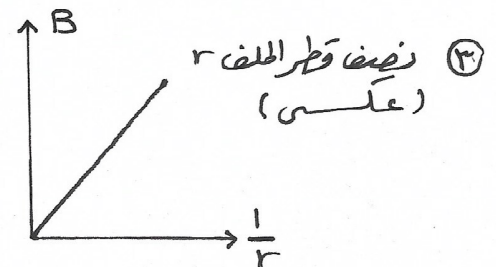 B
③ نصف قطر الملف r
(عكسي)
1/r